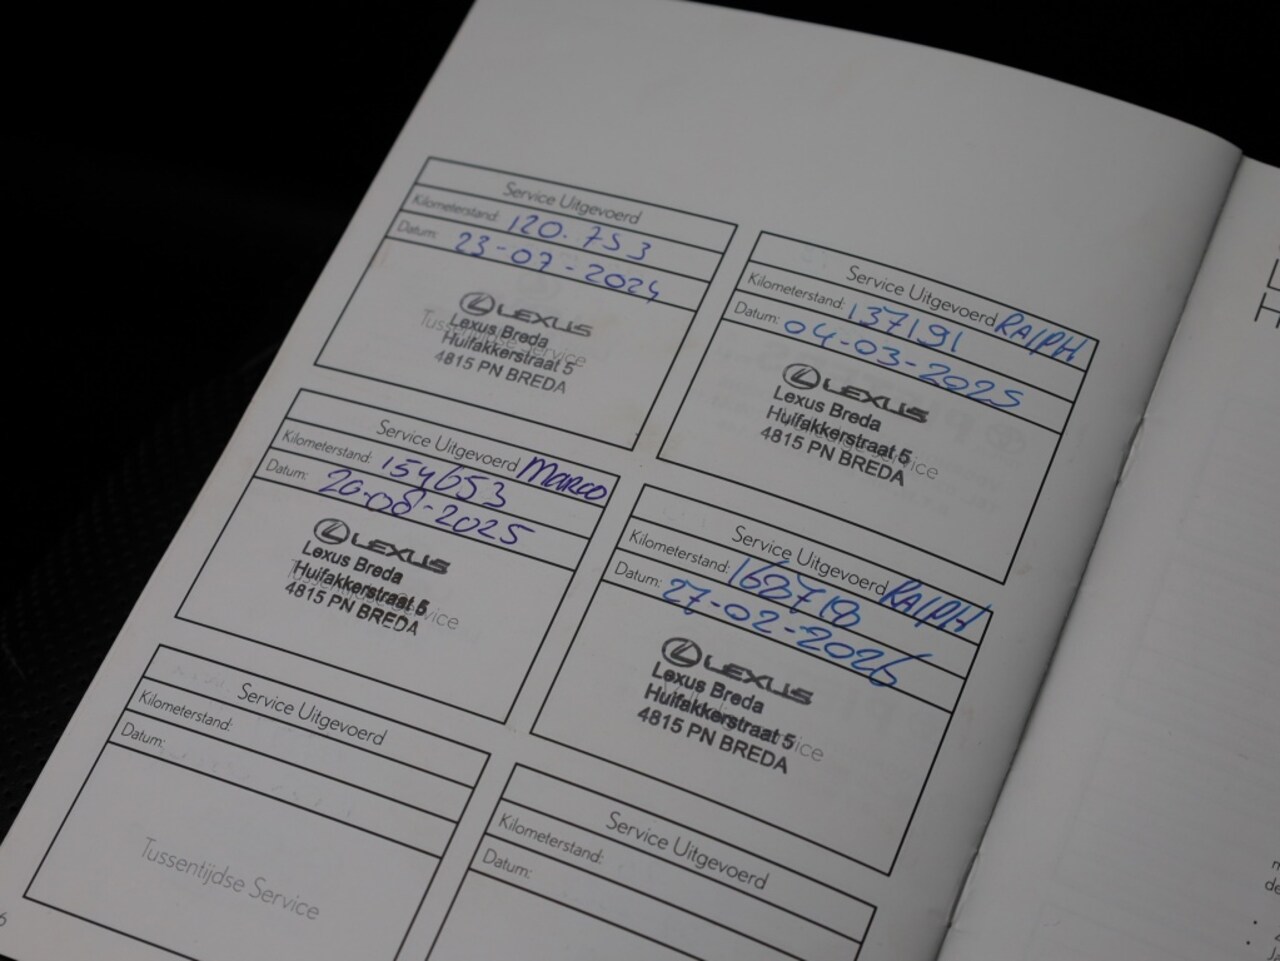 Service Uitgevoerd
Kilometerstand: 120.753
Datum: 23-07-2024
LEXUS
Lexus Breda
Tussentijdse Service
Huifakkerstraat 5
4815 PN BREDA
Service Uitgevoerd RALPH
Kilometerstand: 137191
Datum: 04-03-2025
LEXUS
Lexus Breda
Huifakkerstraat 5
4815 PN BREDA
Service Uitgevoerd MARCO
Kilometerstand: 154653
Datum: 20-08-2025
LEXUS
Lexus Breda
Huifakkerstraat 5
Tussentijdse Service
4815 PN BREDA
Service Uitgevoerd RALPH
Kilometerstand: 168718
Datum: 27-02-2026
LEXUS
Lexus Breda
Huifakkerstraat 5
4815 PN BREDA
Service Uitgevoerd
Kilometerstand:
Datum:
Tussentijdse Service
Service Uitgevoerd
Kilometerstand:
Datum:
6